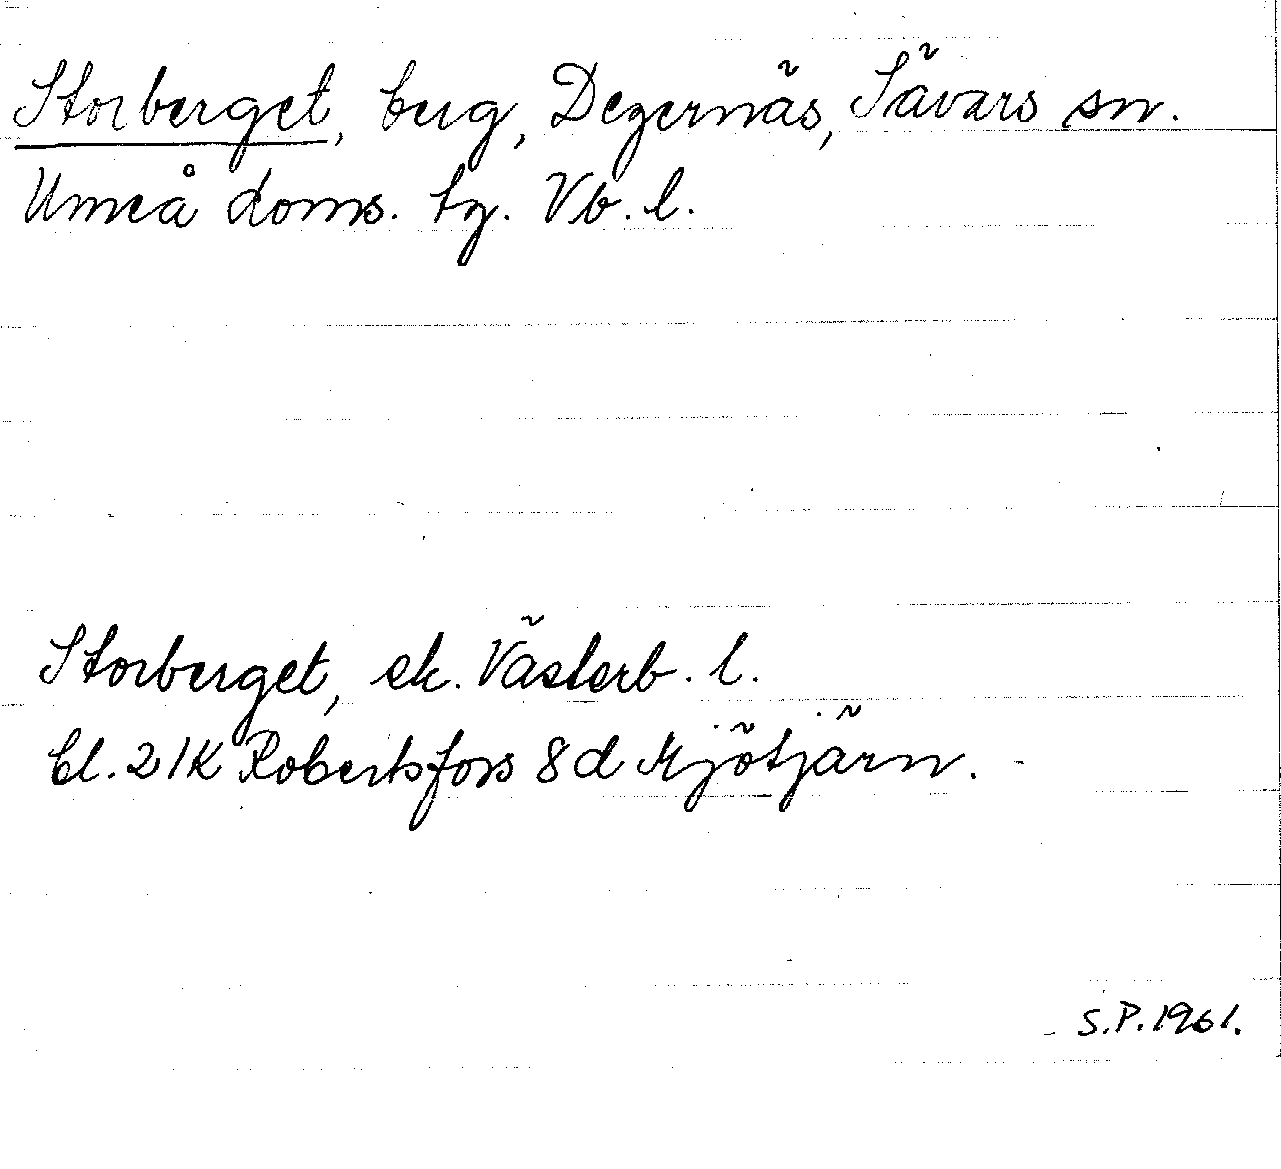 Storberget, berg, Degernäs, Sävars sn.
Umeå doms. tg. Vb. l.
Storberget, ek. Västerb. l.
bl. 21K Robertsfors 8d Mjötjärn.
S.P. 1961.